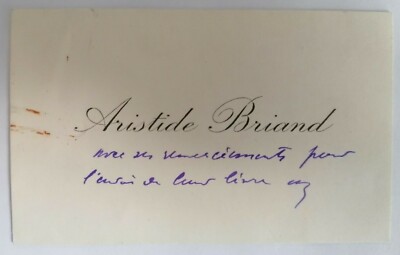 Aristide Briand
avec ses remerciements pour
l'envoi de leur livre